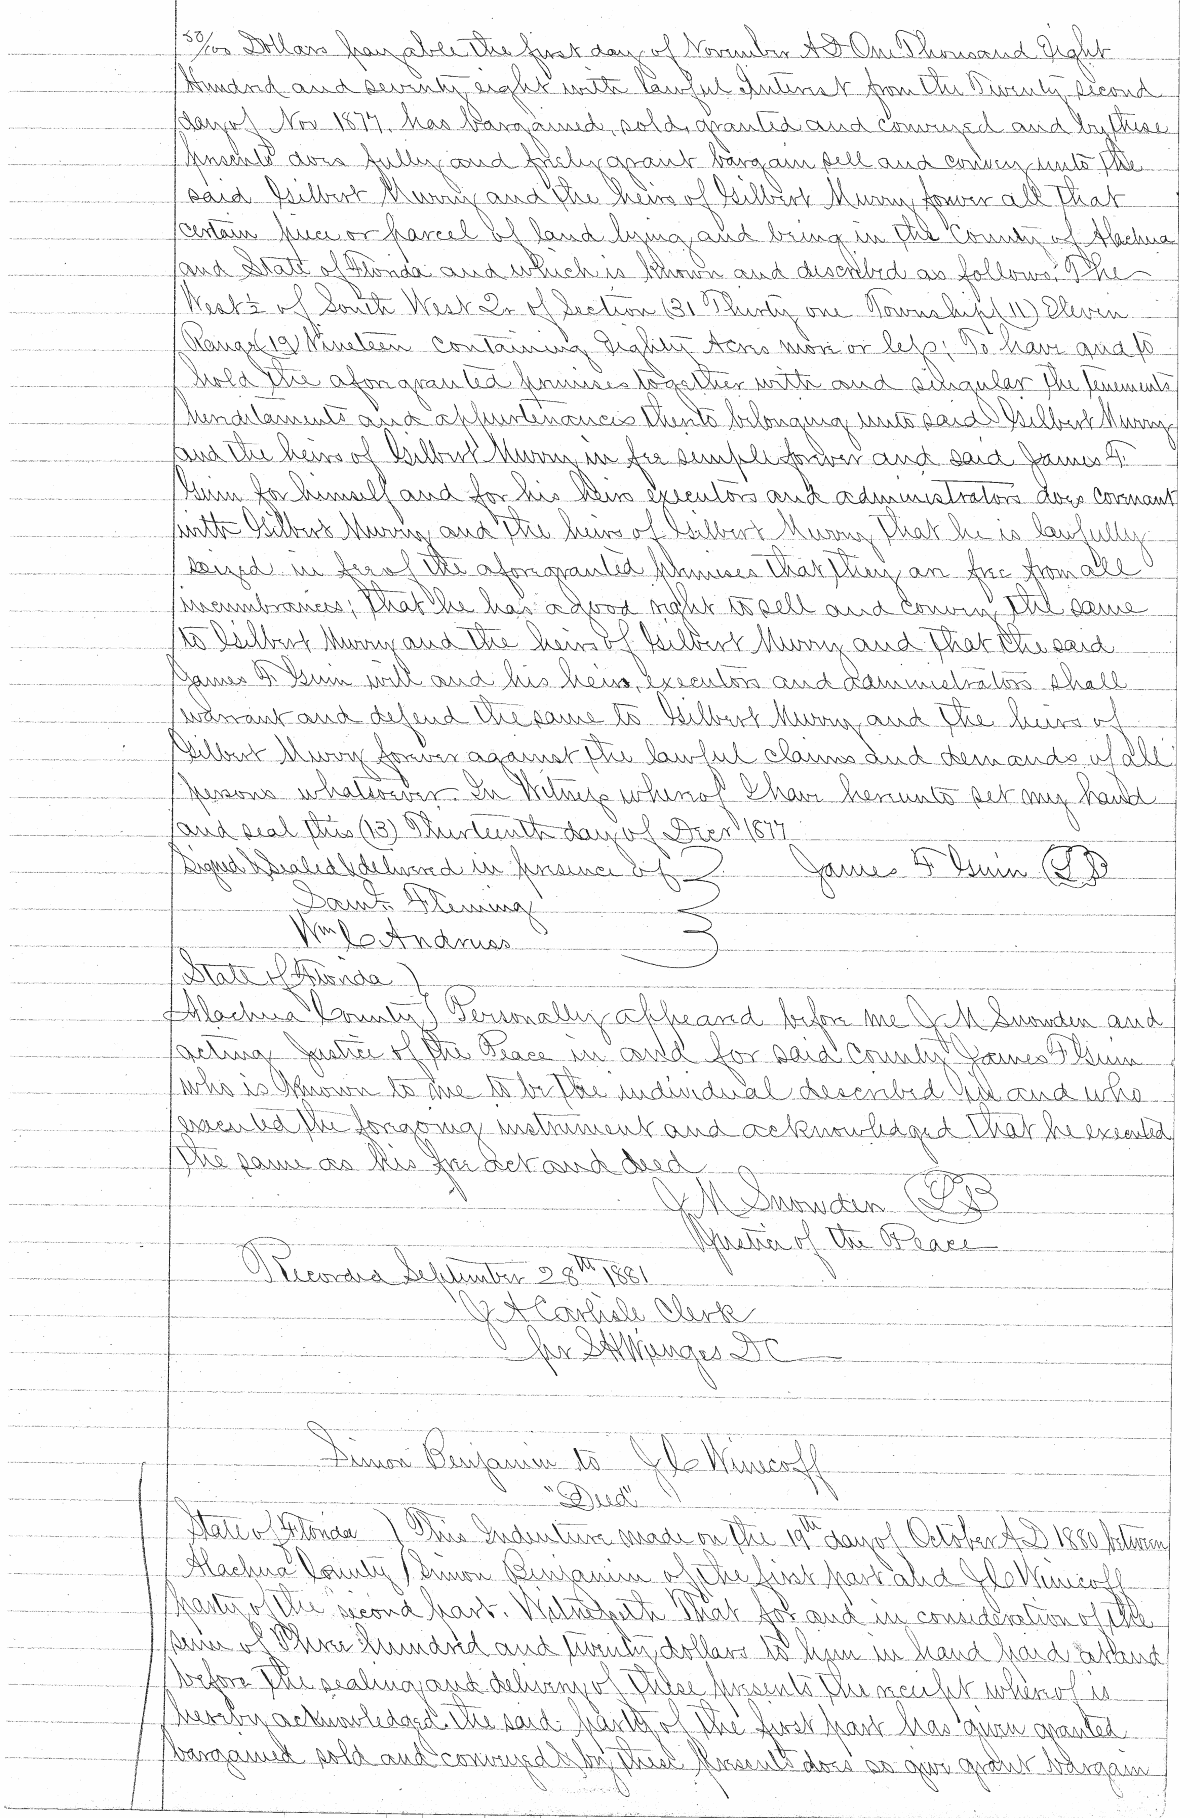 50/100 Dollars payable the first day of November A D One Thousand Eight
Hundred and seventy eight with lawful Interest from the Twenty second
day of Nov 1877, has bargained, sold, granted and conveyed and by these
presents does fully and freely grant bargain sell and convey unto the
said Gilbert Murry and the heirs of Gilbert Murry forever all that
certain piece or parcel of land lying and being in the County of Alachua
and State of Florida and which is known and described as follows: The
West ½ of South West Qr of Section (31 Thirty one Township (11) Eleven
Range (19) Nineteen containing Eighty Acres more or less; To have and to
hold the aforegranted premises together with and singular the tenements
hereditaments and appurtenances thereto belonging unto said Gilbert Murry
and the heirs of Gilbert Murry in fee simple forever and said James F.
Guin for himself and for his heirs executors and administrators does covenant
with Gilbert Murry and the heirs of Gilbert Murry that he is lawfully
seized in fee of the aforegranted premises that they are free from all
incumbrances; that he has a good right to sell and convey the same
to Gilbert Murry and the heirs of Gilbert Murry and that the said
James F Guin will and his heirs, executors and administrators shall
warrant and defend the same to Gilbert Murry and the heirs of
Gilbert Murry forever against the lawful claims and demands of all
persons whatsoever. In Witness whereof I have hereunto set my hand
and seal this (13) Thirteenth day of Decr 1877
Signed & Sealed & delivered in presence of James F Guin
Saml Fleming
Wm C Andruss
State of Florida )
Alachua County ) Personally appeared before me J M Snowden and
acting Justice of the Peace in and for said County James F Guin
who is known to me to be the individual described in and who
executed the forgoing instrument and acknowledged that he executed
the same as his free act and deed
J M Snowden
Justice of the Peace
Recorded September 28th 1881
J A Carlisle Clerk
per S H Wienges D C
Simon Benjamin to J C Winecoff
"Deed"
State of Florida ) This Indenture made on the 19th day of October A D 1880 between
Alachua County ) Simon Benjamin of the first part and J C Winecoff
party of the second part. Witnesseth That for and in consideration of the
sum of Three hundred and twenty dollars to him in hand paid at and
before the sealing and delivery of these presents the receipt whereof is
hereby acknowledged. the said party of the first part has given granted
bargained sold and conveyed & by these presents does so give grant bargain